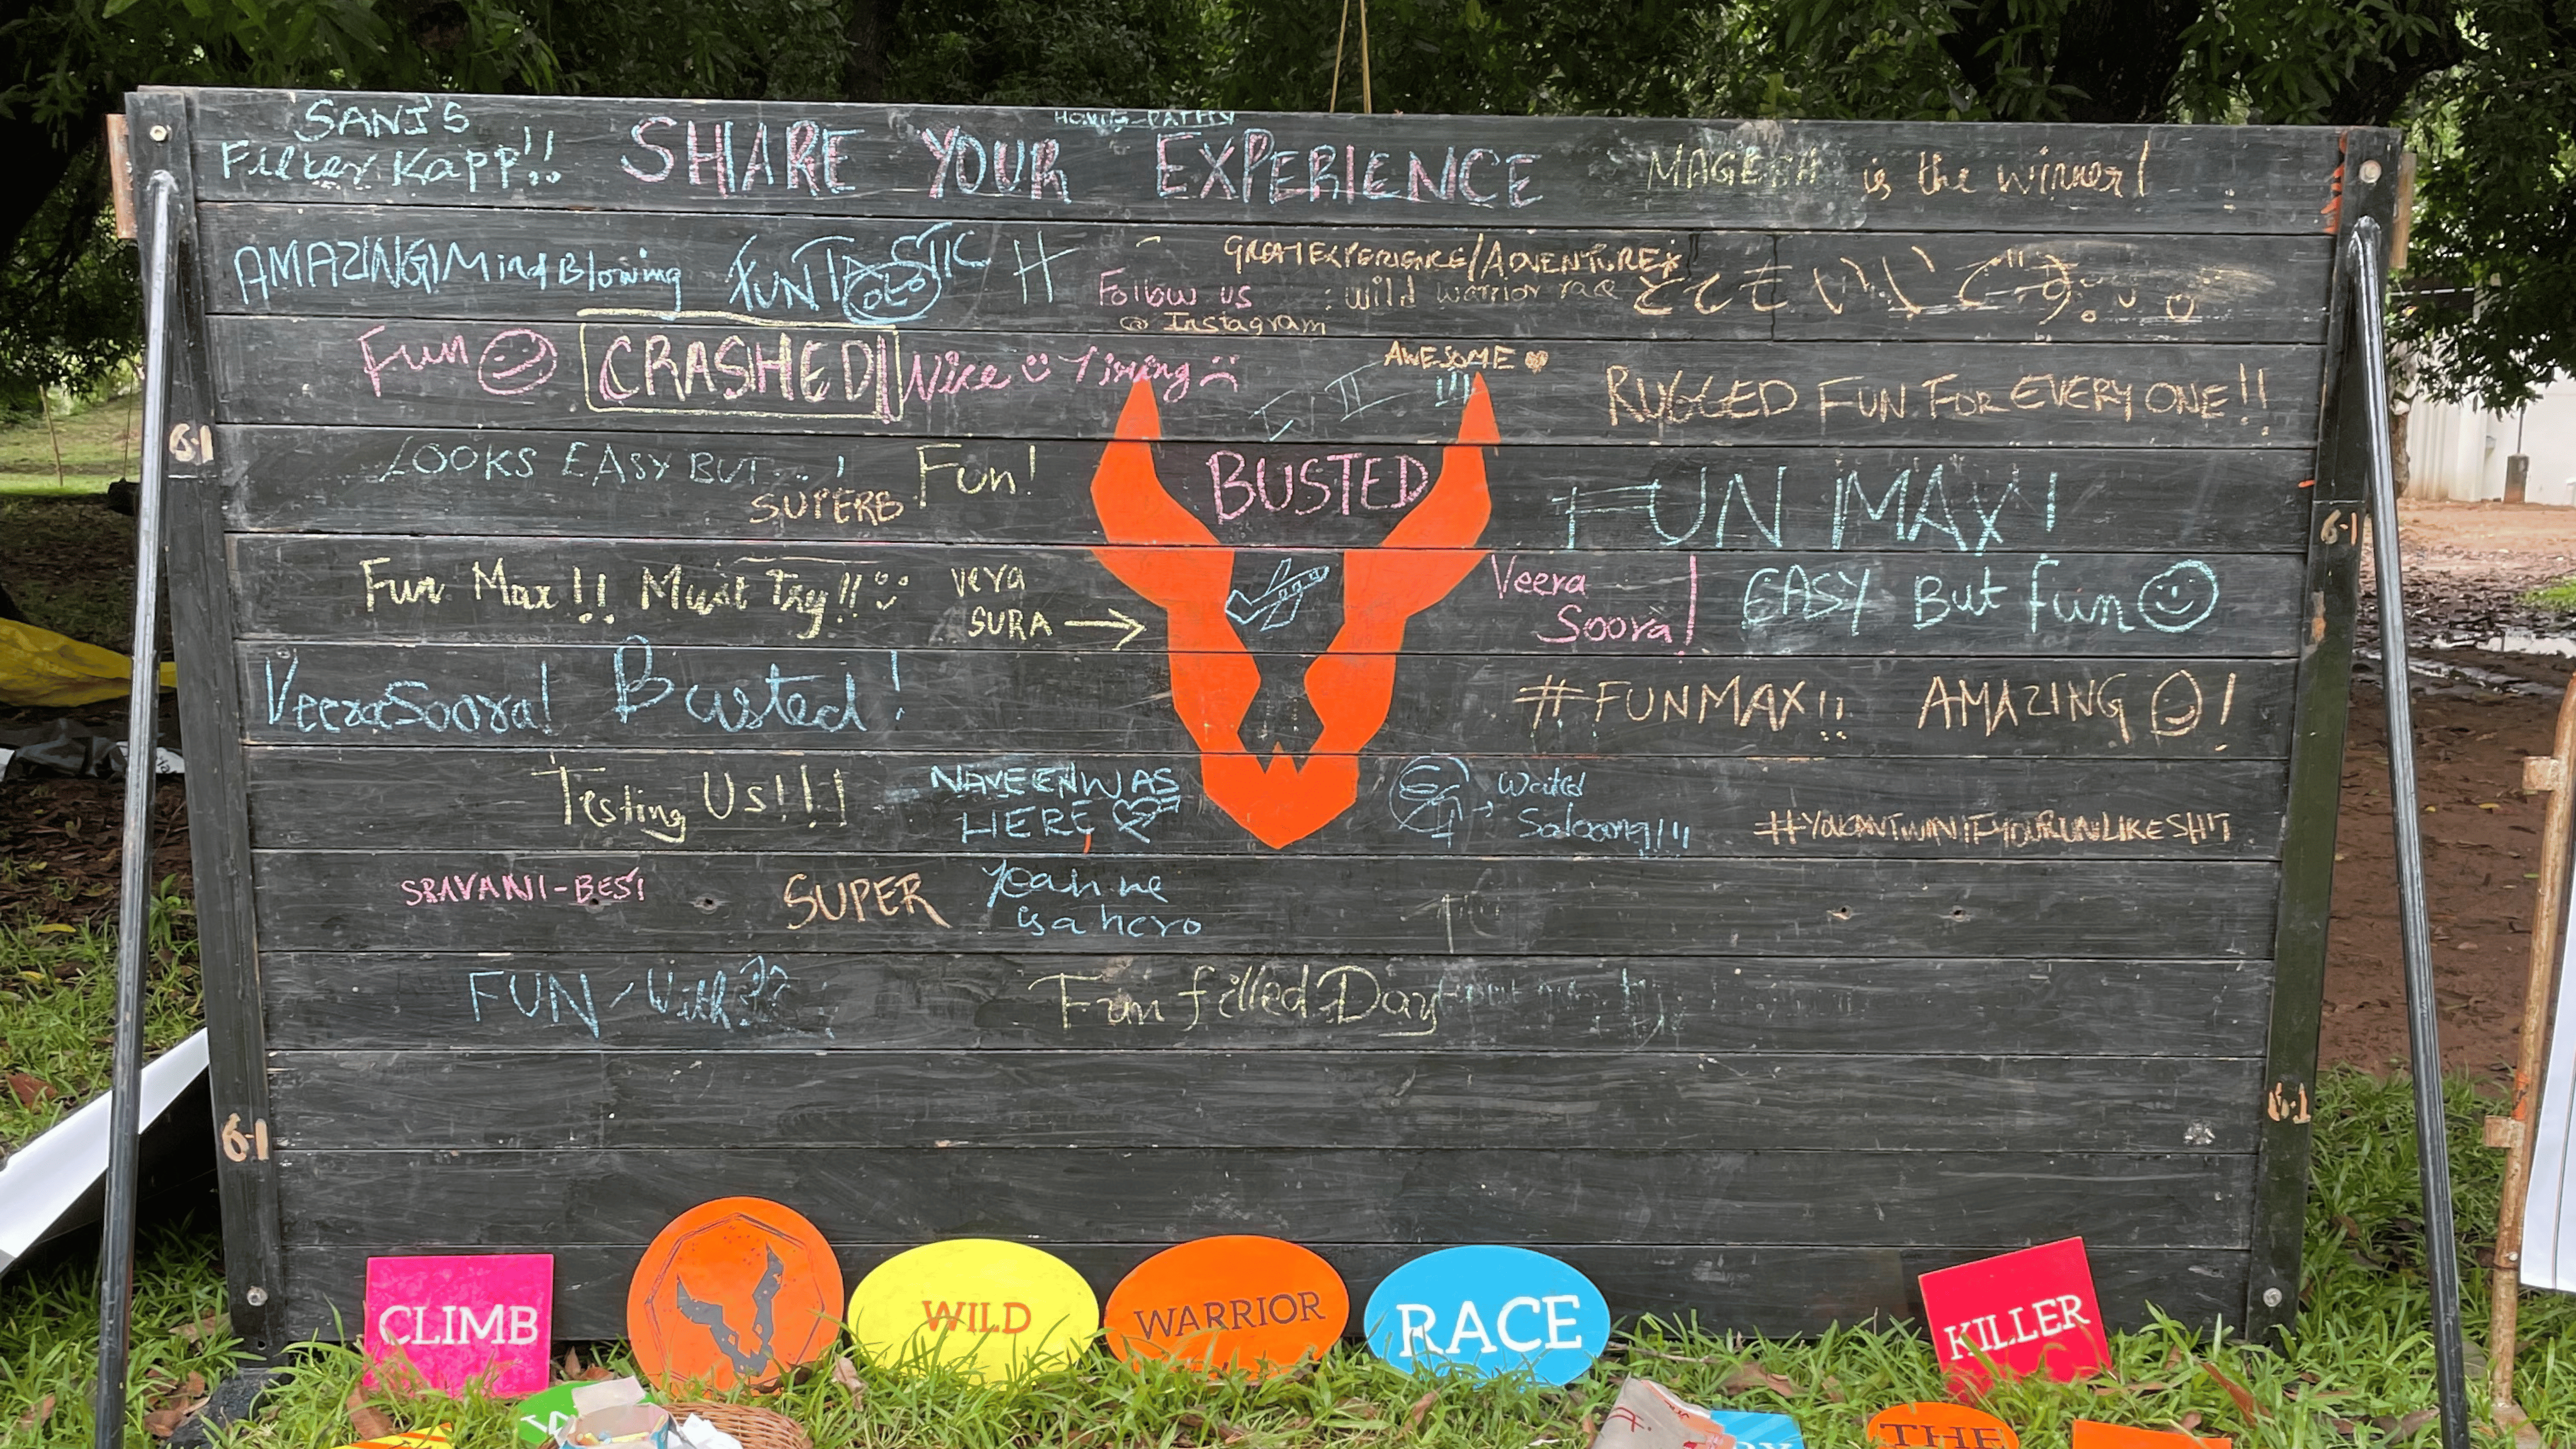 SANJ'S
Filter Kapp!!
SHARE YOUR EXPERIENCE
is the winner!
AMAZING! Mind Blowing
FUNTASTIC
GREAT EXPERIENCE/ADVENTURE
Follow us : wild warrior race
@ Instagram
とてもいいです。
Fun
CRASHED
Nice
Tiring
AWESOME
!!!
RUGGED FUN FOR EVERYONE!!
LOOKS EASY BUT...!
SUPERB
Fun!
BUSTED
FUN MAX!
Fun Max!! Must Try!!
vera
SURA
Veera
Soora!
EASY But fun
VeeraSoora!
Busted!
#FUNMAX!!
AMAZING !
Testing Us!!!
NAVEEN WAS
HERE
#YOUCANTWINIFYOURUNLIKESH!T
SRAVANI-BEST
SUPER
Yeah me
is a hero
FUN - With
Fun filled Day
6-1
6-1
6-1
6-1
CLIMB
WILD
WARRIOR
RACE
KILLER
THE